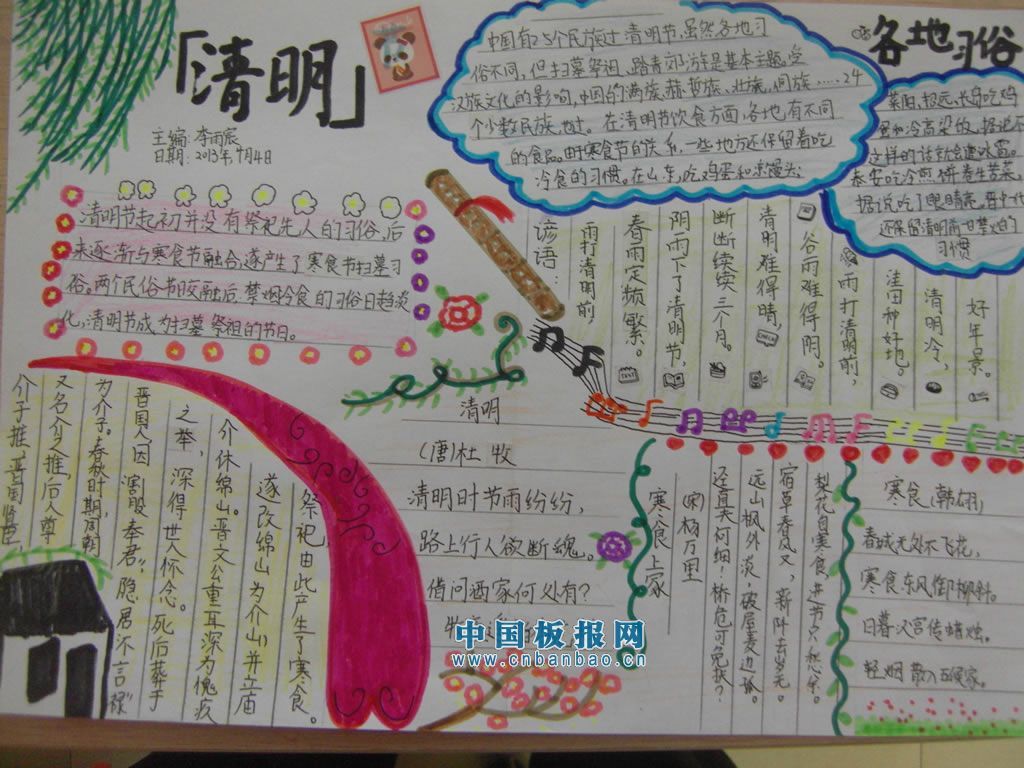 「清明」
主编:李雨宸
日期:2013年4月4日
清明节起初并没有祭祀先人的习俗,后
来逐渐与寒食节融合,遂产生了寒食节扫墓习
俗。两个民俗节日交融后,禁烟冷食的习俗日趋淡
化,清明节成为扫墓祭祖的节日。
中国有25个民族过清明节,虽然各地习
俗不同,但扫墓祭祖、踏青郊游是基本主题,受
汉族文化的影响,中国的满族、赫哲族、壮族、侗族……24
个少数民族,也过。在清明节饮食方面,各地有不同
的食品。由于寒食节的关系,一些地方还保留着吃
冷食的习惯。在山东,吃鸡蛋和冷馒头;
各地习俗
莱阳、招远、长岛吃鸡
蛋和冷高粱的,据说不
这样的话就会遭冰雹。
泰安吃冷煎饼卷生苦菜,
据说吃了眼睛亮。晋中一代
还保留清明前日禁火的
习惯
谚语:
雨打清明前,
春雨定频繁。
阴雨下了清明节,
断断续续三个月。
清明难得晴,
谷雨难得阴。
雨打清明前,
洼田种好地。
清明冷,
好年景。
介子推,晋国贤臣,
又名介之推,后人尊
为介子。春秋时期周朝
晋国人,因“割股奉君”,隐居“不言禄”
之举,深得世人怀念。死后葬于
介休绵山。晋文公重耳深为愧疚
遂改绵山为介山,并立庙
祭祀,由此产生了寒食。
清明
(唐)杜牧
清明时节雨纷纷,
路上行人欲断魂。
借问酒家何处有?
牧
寒食上冢
(宋)杨万里
迳直夫何细!桥危可免扶?
远山枫外淡,破屋麦边孤。
宿草春风又,新阡去岁无。
梨花自寒食,进节只愁余。
寒食(韩翃)
春城无处不飞花,
寒食东风御柳斜。
日暮汉宫传蜡烛,
轻烟散入五侯家。
中国板报网
www.cnbanbao.cn